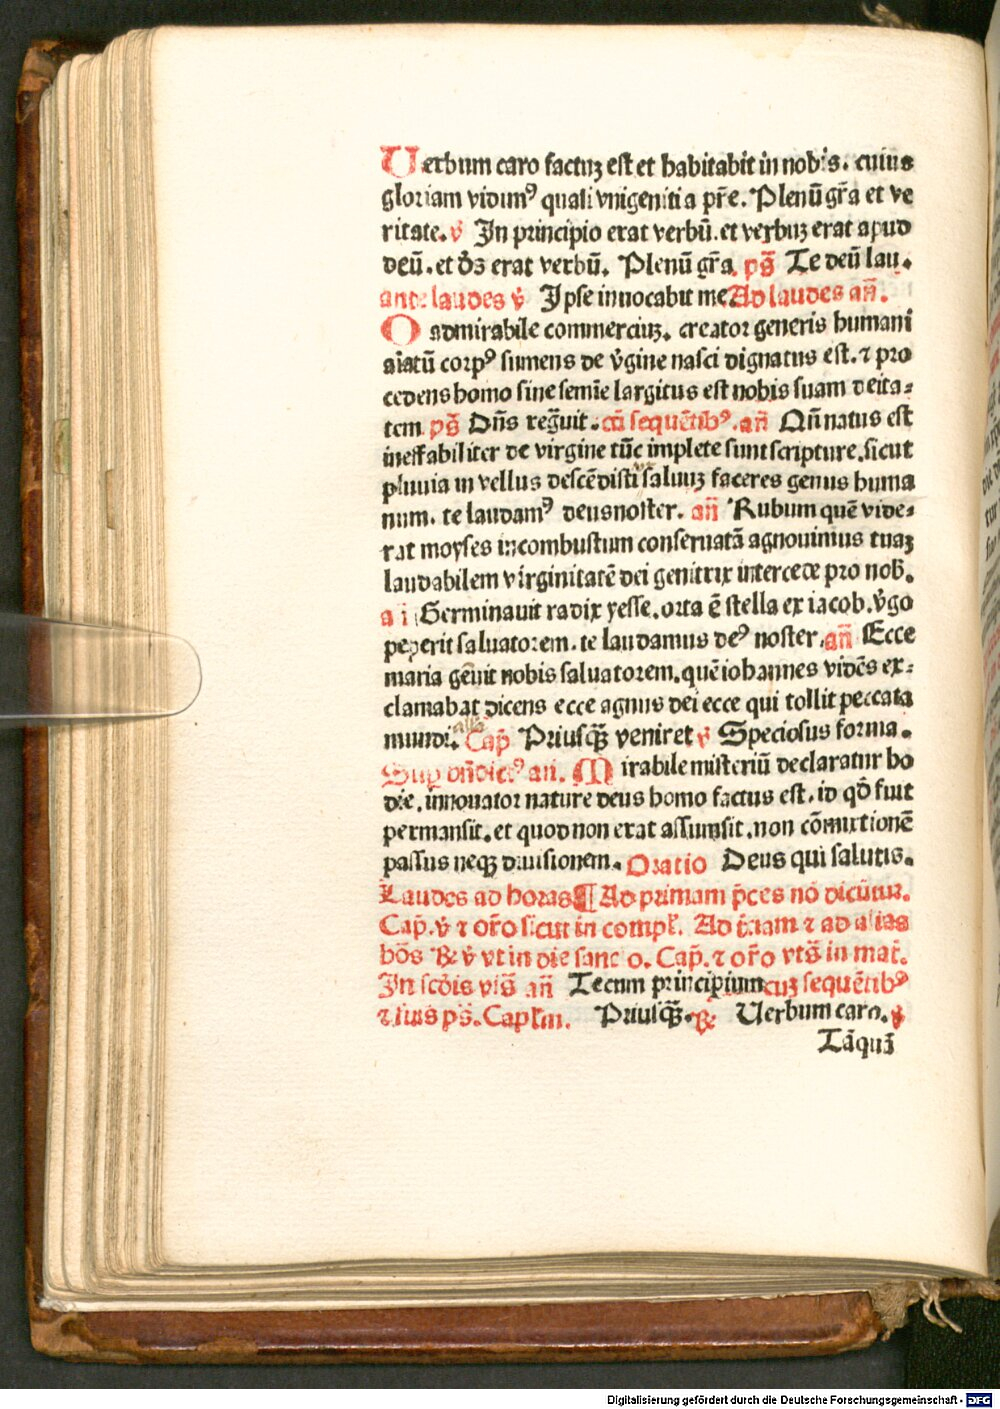 Uerbum caro factuʒ est et habitabit in nobis. cuius
gloriam vidimꝰ quasi vnigeniti a pr̄e. Plenū gr̄a et ve
ritate. v̓ In principio erat verbū. et verbuʒ erat apud
deū. et dꝫ erat verbū. Plenū gr̄a. ps̄ Te deū lau.
ante laudes v̓ Ipse inuocabit me Ad laudes an̄.
O admirabile commerciuʒ. creator generis humani
aīatū corpꝰ sumens de v̓gine nasci dignatus est. ⁊ pro
cedens homo sine semīe largitus est nobis suam deita⸗
tem ps̄ Dn̄s regͣuit. cū sequētibꝰ. an̄ Qn̄ natus est
ineffabiliter de virgine tūc implete sunt scripture. sicut
pluuia in vellus descēdisti saluuʒ faceres genus huma
num. te laudamꝰ deus noster. an̄ Rubum quē vide⸗
rat moyses incombustum conseruatā agnouimus tuaʒ
laudabilem virginitatē dei genitrix intercede pro nob̄.
an̄ Germinauit radix yesse. orta ē stella ex iacob. v̓go
peperit saluatorem. te laudamus deꝰ noster. an̄ Ecce
maria genuit nobis saluatorem. quē iohannes vidēs ex⸗
clamabat dicens ecce agnus dei ecce qui tollit peccata
mundi. Cap̄ Priusqͣꝫ veniret v̓ Speciosus forma.
Sup bn̄dictꝰ an̄. Mirabile misteriū declaratur ho
die. innouator nature deus homo factus est. id qd̄ fuit
permansit. et quod non erat assumsit. non cōmixtionē
passus neqꝫ diuisionem. Oratio Deus qui salutis.
Laudes ad horas ¶ Ad primam p̄ces nō dicūtur.
Cap̄. v̓ ⁊ or̄o sicut in compl̄. Ad t̓ciam ⁊ ad alias
hōs R̷ v̓ vt in die sancto. Cap̄. ⁊ or̄o vts̄ in mat̓.
In scd̄is vis̄ an̄ Tecum principium cuʒ sequētibꝰ
⁊ suis ps̄. Capl̄m. Priusqͣꝫ. R̷ Uerbum caro. v̓
Tāquꝫ
Digitalisierung gefördert durch die Deutsche Forschungsgemeinschaft - DFG